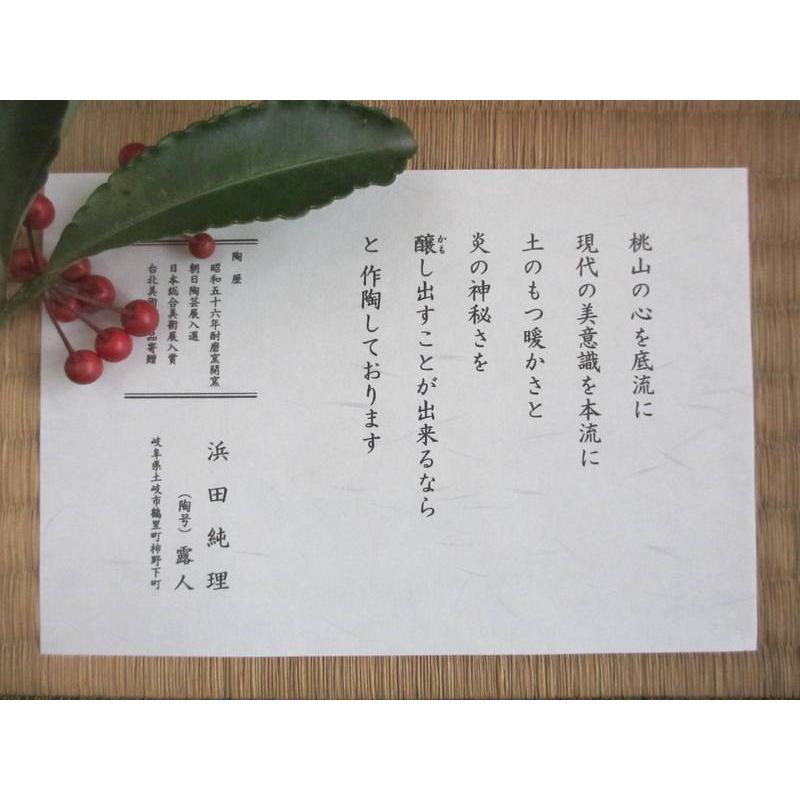 桃山の心を底流に
現代の美意識を本流に
土のもつ暖かさと
炎の神秘さを
醸し出すことが出来るなら
かも
と 作陶しております
陶歴
昭和五十六年耐磨窯開窯
朝日陶芸展入選
日本総合美術展入賞
台北美術品寄贈
浜田純理
(陶号) 露人
岐阜県土岐市鶴里町柿野下町